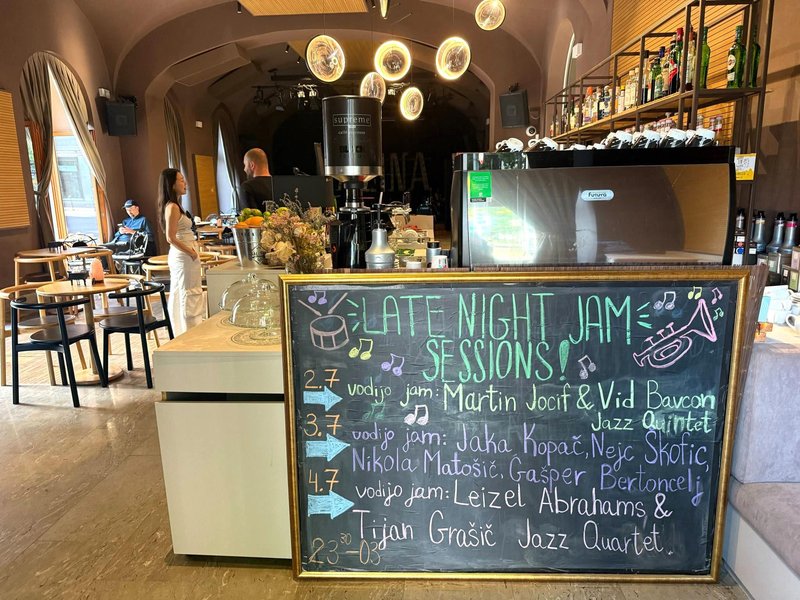 supreme
Futura
LATE NIGHT JAM
SESSIONS!
2.7 vodijo jam: Martin Jocif & Vid Bavcon
Jazz Quintet
3.7 vodijo jam: Jaka Kopač, Nejc Škofic,
Nikola Matošič, Gašper Bertoncelj
4.7 vodijo jam: Leizel Abrahams &
Tijan Grašič Jazz Quartet
23³⁰-03